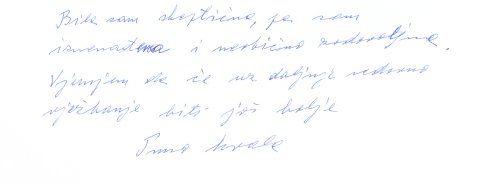 Bila sam skeptična, pa sam
iznenađena i neobično zadovoljna.
Vjerujem da će uz daljnje redovno
vježbanje biti još bolje
Puno hvala